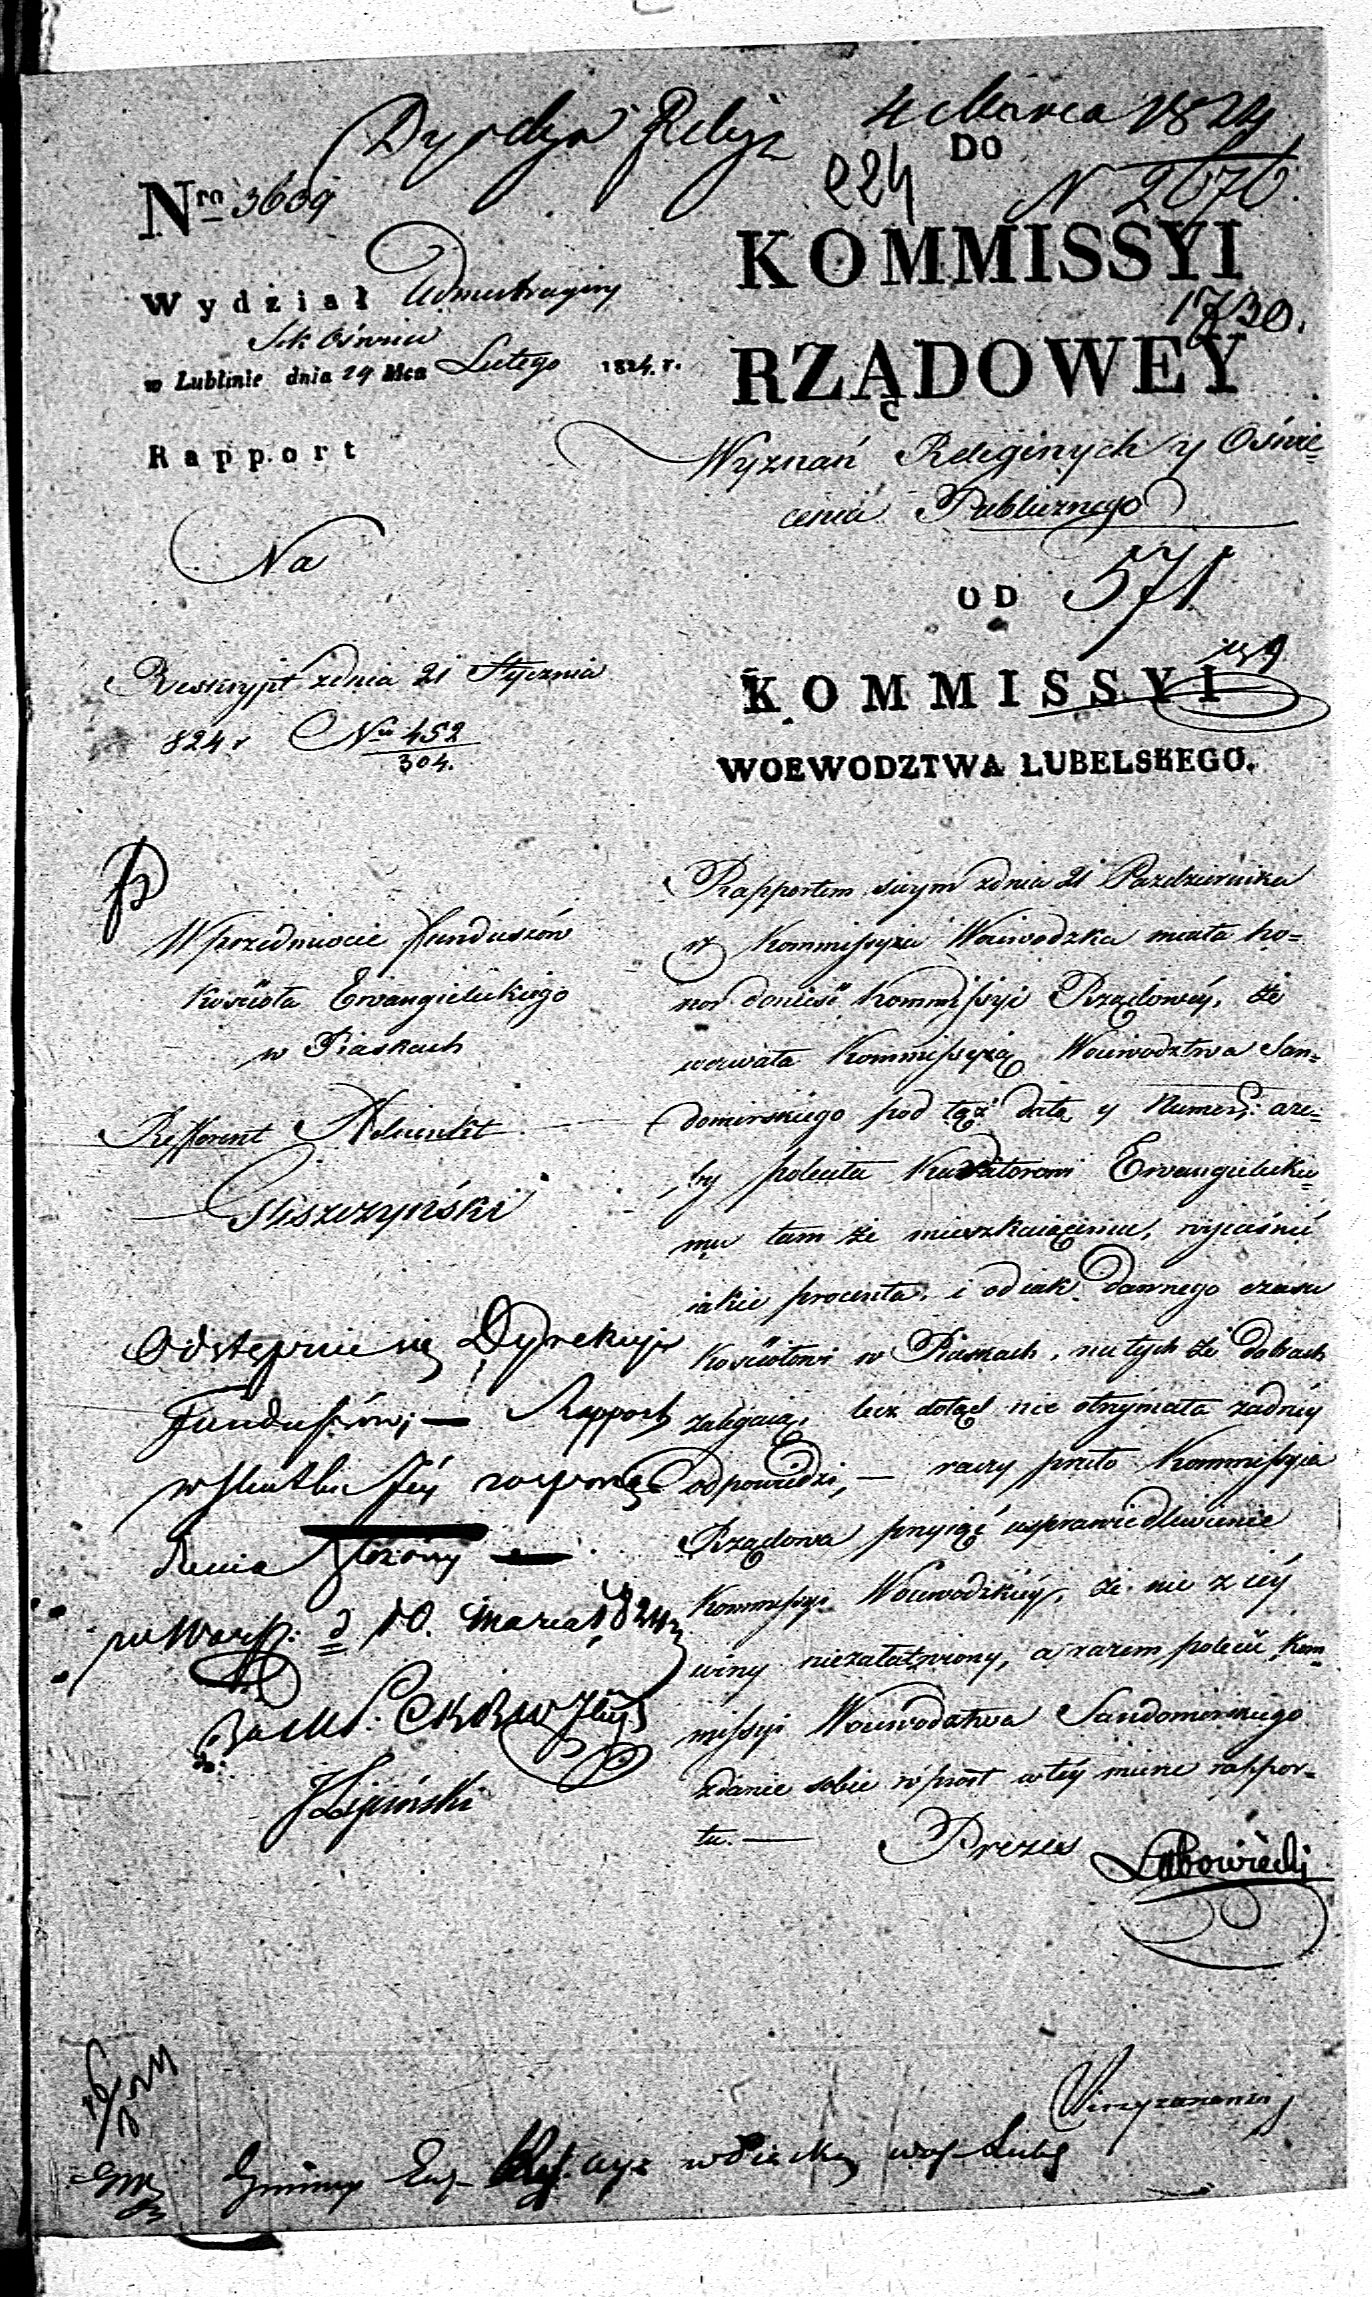 4 Marca 1824
DO
224
N 2676.
Nro 3609
KOMMISSYI
Wydział Administracyiny
1730.
Sek Oświec
w Lublinie dnia 24 Mca Lutego 1824. r.
RZĄDOWEY
Rapport
Wyznań Religinych y Oświe=
cenia Publicznego
Na
OD 571
Reskrypt zdnia 21 Stycznia
824 r Nro 452
304.
KOMMISSYI
WOEWODZTWA LUBELSKEGO.
W przedmiocie funduszów
kościoła Ewangielickiego
w Piaskach
Refferent Adiunkt
Odstępuie się Dyrekcyi
Funduszów; — Rapport
w skutku Jey rozporzą=
dzenia złożony
w Warsz: d 10. Marca 1824
JLipiński
Rapportem swym zdnia 21 Pazdziernika
Kommissyia Woiewodzka miała ho=
nor donieść Kommissyi Rządowey, że
wezwała Kommissyią Woiewodztwa San=
domirskiego pod tąż datą y Numerem aże=
by poleciła Kuratorowi Ewangielickie=
mu tam że mieszkaiącemu, wyiaśnić
iakie procenta, i od iak dawnego czasu
kościołowi w Piaskach, na tych że dobrach
zalegaią, lecz dotąd nie otrzymała żadney
odpowiedzi, — raczy przeto Kommissyia
Rządowa przyiąć usprawiedliwienie
Kommissyi Woiewodzkiey, że nie z iey
winy niezałatwiony, a razem polecić Kom=
missyi Woiewodztwa Sandomirskiego
zdanie sobie wprost w tey mierze rappor=
tu. —
Prezes Lubowiecki
Gminy Ew Augs w Piaskach woj Lubel